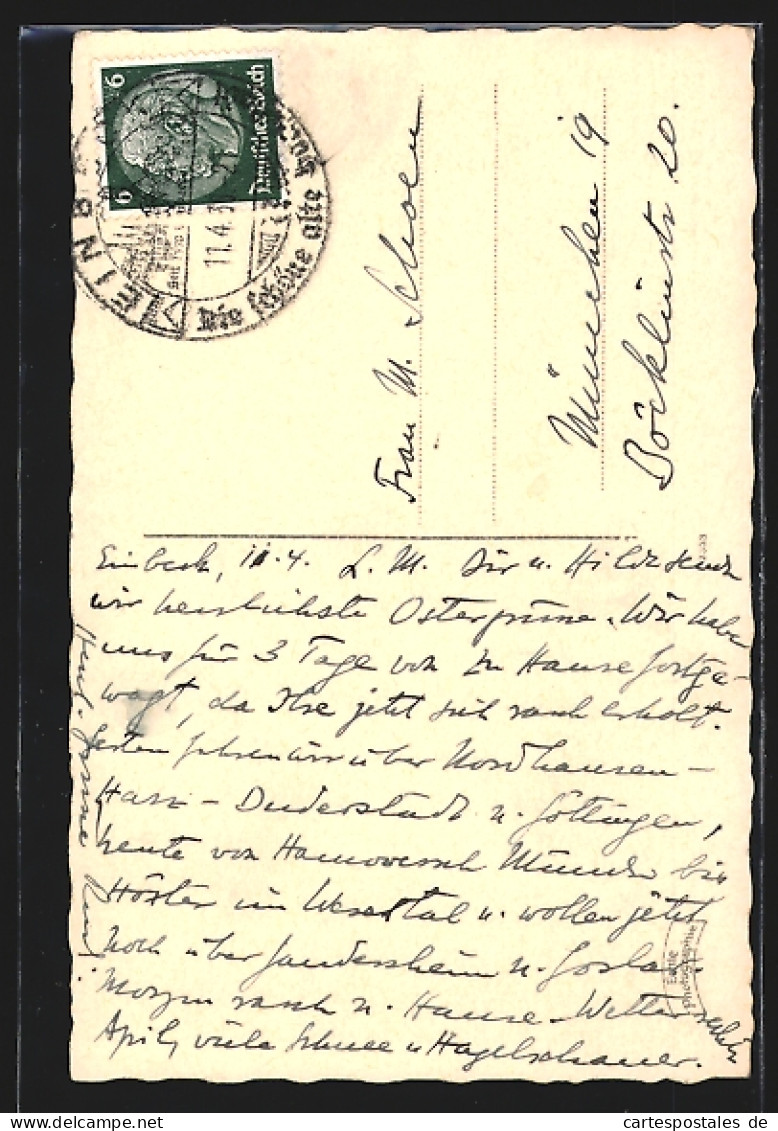 6 6
Deutsches Reich
EINB
11.4.3
schöne alte
Frau M. Schoen
München 19
Böcklinstr 20.
Einbeck, 11.4. L. M. Dir u. Hilde senden
wir herzlichste Ostergrüsse. Wir haben
uns für 3 Tage von zu Hause fortge-
wagt, da Ilse jetzt sich rasch erholt.
Gestern fuhren wir über Nordhausen -
Harz - Duderstadt n. Göttingen,
heute von Hannoversch Münden bis
Höxter im Wesertal u. wollen jetzt
noch über Gandersheim n. Goslar.
Morgen rasch n. Hause. Wetter
April, viele Schnee u Hagelschauer.
Herzl. Grüsse
Echte
Photographie
delcampe.net
cartespostales de